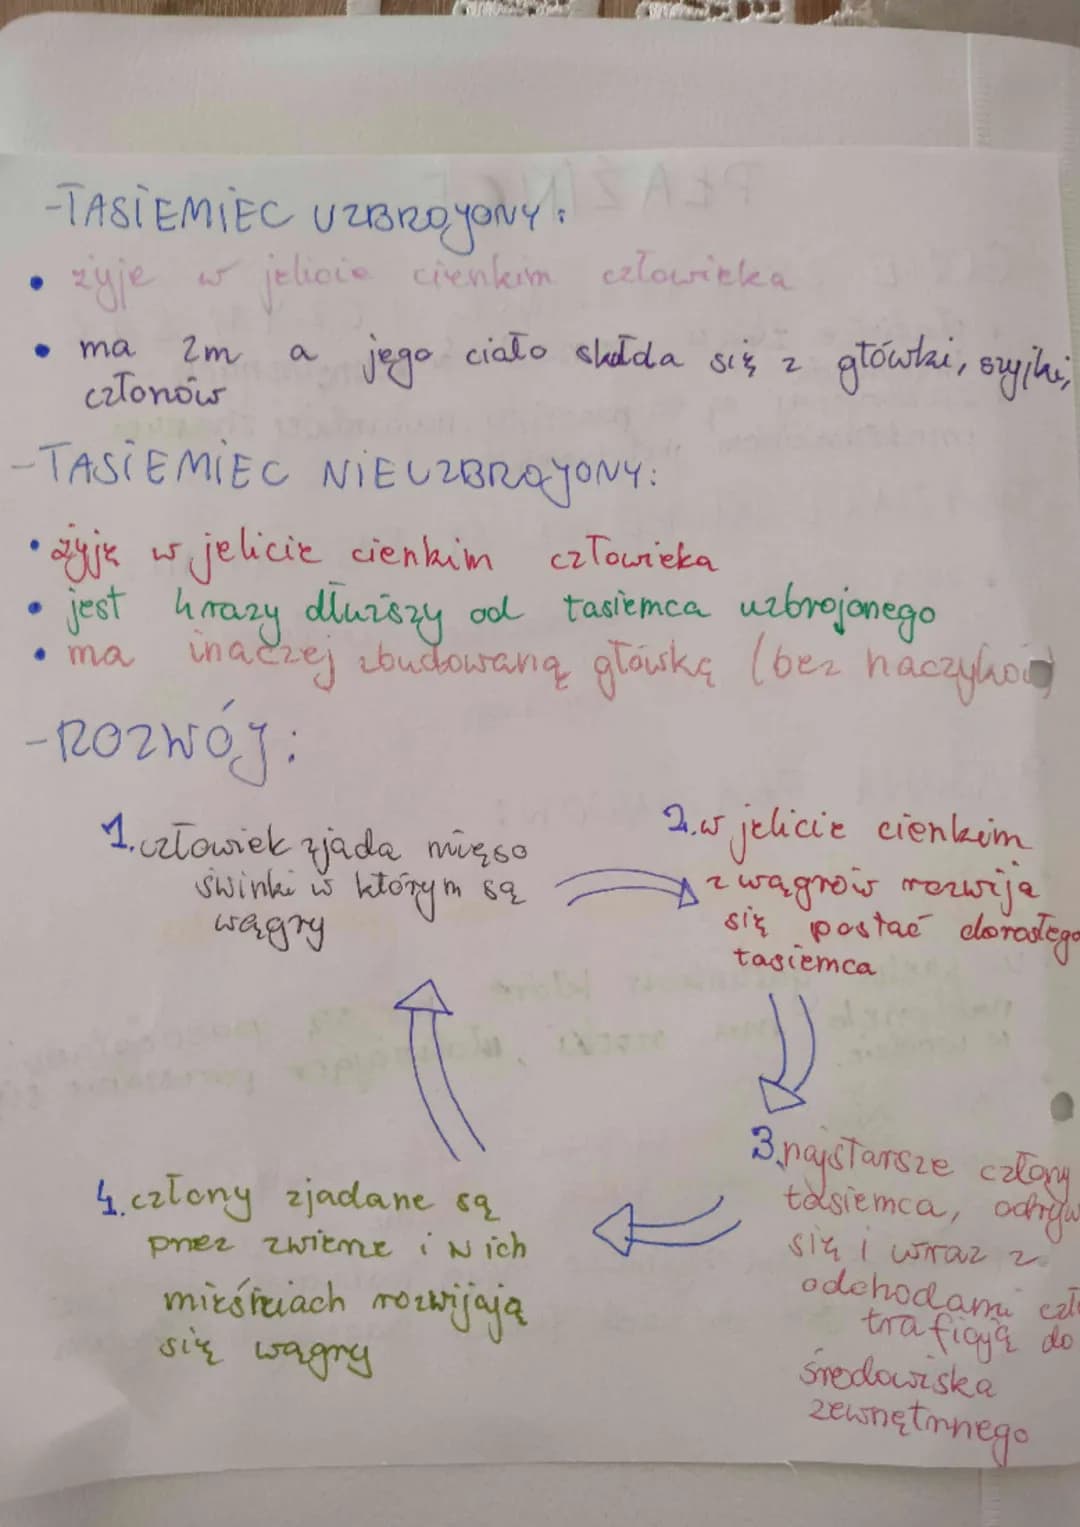 -TASIEMIEC UZBROJONY:
• żyje w jelicie cienkim człowieka
• ma 2m a jego ciało składa się z główki, szyjki,
członów
-TASIEMIEC NIEUZBROJONY:
• żyję w jelicie cienkim człowieka
• jest 4 razy dłuższy od tasiemca uzbrojonego
• ma inaczej zbudowaną główkę (bez haczyków)
-ROZWÓJ:
1. człowiek zjada mięso
świnki w którym są
wągry
2. w jelicie cienkim
z wągrów rozwija
się postać dorosłego
tasiemca
3. najstarsze człony
tasiemca,
się i wraz z
odchodami
trafiają do
środowiska
zewnętrznego
4. człony zjadane są
przez zwierzę i w ich
mięśniach rozwijają
się wągry